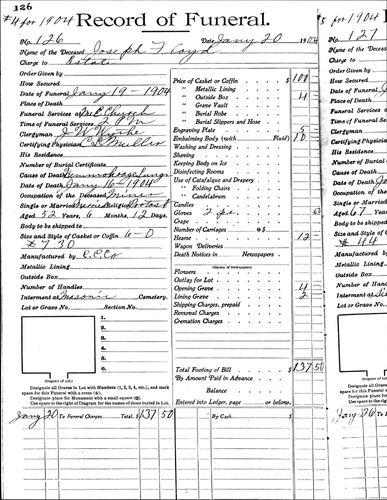 126
#4 for 1904
Record of Funeral.
No. 126 Date Jany 20 1904
Name of the Deceased Joseph F
Charge to Estate
Order Given by
How Secured
Date of Funeral Jany 19-1904
Place of Death
Funeral Services at M.E. Church
Time of Funeral Service 2 PM
Clergyman J W
Certifying Physician C
His Residence
Number of Burial Certificate
Cause of Death
Date of Death Jany 16-1904
Occupation of the Deceased Miner
Single or Married Religion
Aged 52 Years, 6 Months, 12 Days.
Body to be shipped to
Size and Style of Casket or Coffin 6-0
#730
Manufactured by
Metallic Lining
Outside Box
Number of Handles
Interment at Masonic Cemetery.
Lot or Grave No. Section No.
1.
2.
3.
4.
5.
6.
(Diagram of Lot.)
Price of Casket or Coffin $
" Metallic Lining
" Outside Box 4
" Grave Vault
" Burial Robe
" Burial Slippers and Hose
Engraving Plate 5
Embalming Body (with Fluid) 10
Washing and Dressing
Shaving
Keeping Body on Ice
Disinfecting Rooms
Use of Catafalque and Drapery
" Folding Chairs
" Candelabrum
Candles
Gloves 2 prs.
Crape
Number of Carriages @ $
Hearse 12
Wagon Deliveries
Death Notices in Newspapers
(Names of Newspapers)
Flowers
Outlay for Lot
Opening Grave 4
Lining Grave 2
Shipping Charges, prepaid
Removal Charges
Cremation Charges
Total Footing of Bill $137 50
By Amount Paid in Advance
Balance
Entered into Ledger, page or below.
Designate all Graves in Lot with Numbers (1, 2, 3, 4, etc.), and mark
space for this Funeral with a cross (+).
Designate place for Monument with a small square (□).
Use space to right of Diagram for the names of those buried in Lot.
Jany 20 To Funeral Charges Total, $137 50 By Cash $
for 1904
No. 127
Name of the
Charge to
Order Given
How Secured
Date of Funeral
Place of Death
Funeral Services
Time of Funeral
Clergyman
Certifying
His Residence
Number of
Cause of Death
Date of Death
Occupation of
Single or
Aged 67 Y
Body to be
Size and Style
#44
Manufactured
Metallic Lining
Outside Box
Number of
Interment at
Lot or Grave
(Diagram
Designate
space for this
Designate
Use space
Jany 26 To